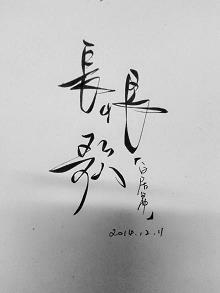 長恨
歌
「白居易」
2016.12.11